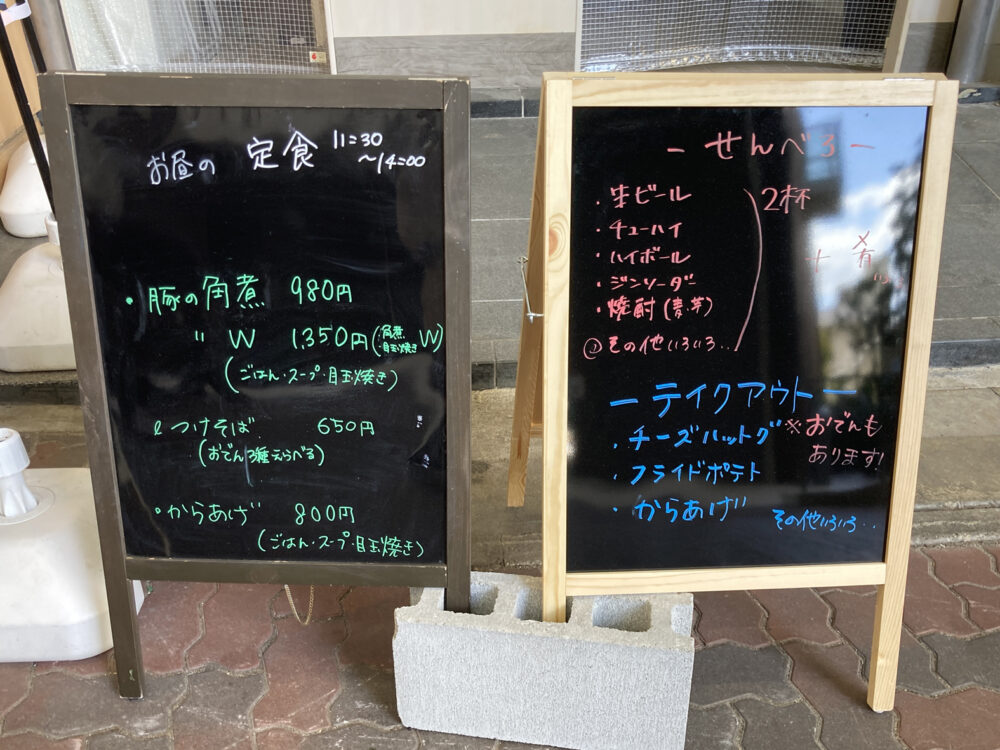 お昼の 定食 11:30
～14:00
・豚の角煮 980円
〃 W 1,350円(角煮・目玉焼きW)
(ごはん・スープ・目玉焼き)
つけそば 650円
(おでん3種えらべる)
・からあげ 800円
(ごはん・スープ・目玉焼き)
－せんべろ－
・生ビール
・チューハイ
・ハイボール
・ジンソーダー
・焼酎(麦.芋)
その他いろいろ..
2杯
+ 肴
ーテイクアウトー
・チーズハットグ
・フライドポテト
・からあげ
※おでんも
あります!
その他いろいろ..